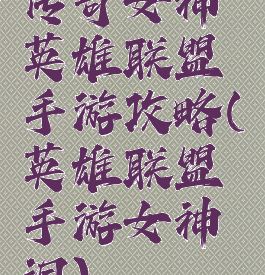 传奇女神
英雄联盟
手游攻略(
英雄联盟
手游女神